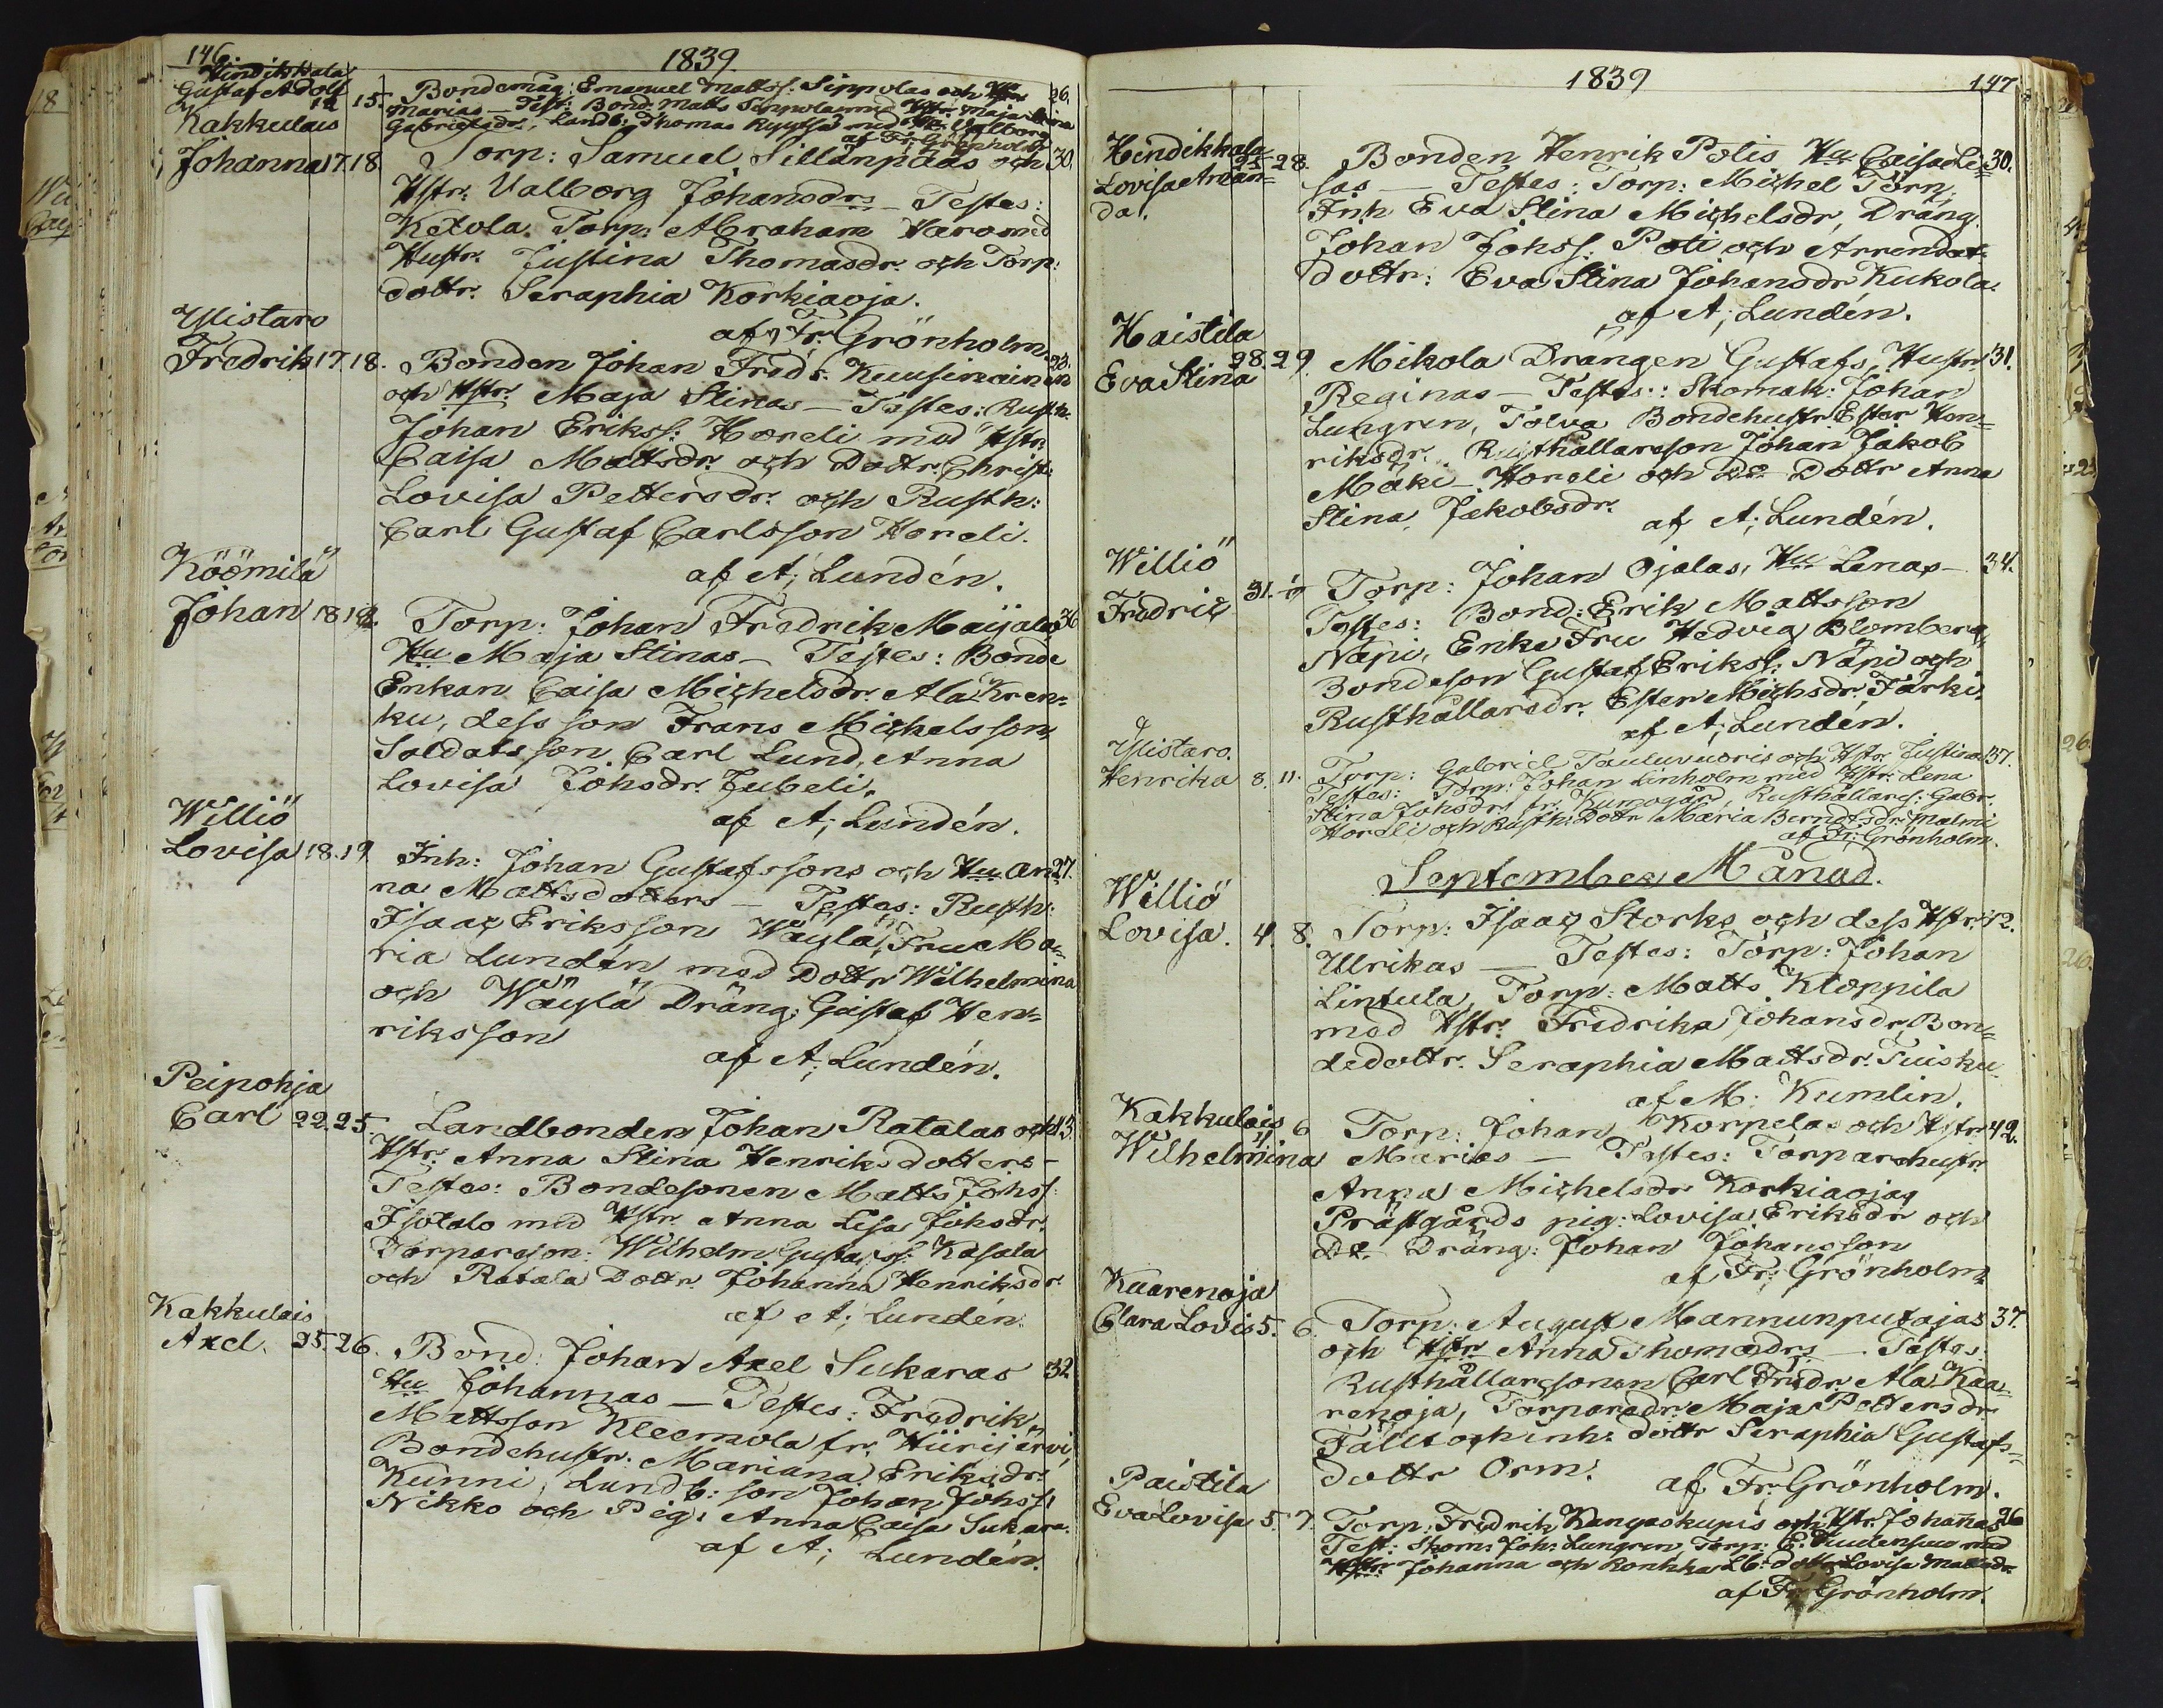 146.
1839
Hindikkala
Gustaf Adolf
14 15. Bondemåg: Emanuel Matts: Sippolas och Hu 26.
Marias — Test: Bond: Matts Sippola med Hstr. Maja Stina
Gabrielsdr, Landb: Thomas Ryytsä med Hu Valborg
af Fr: Grönholm
Kakkulais
Johanna 17. 18. Torp: Samuel Sillanpääs och 30.
Hstr. Valborg Johansdrs — Testes:
Ketola Torp: Abraham Haro med
Hustr. Justina Thomasdr. och Torp:
dottr. Seraphia Korkiaoja.
af Fr: Grönholm.
Ylistaro
Fredrik 17. 18. Bonden Johan Fredr. Kuusimainen 23.
och Hstr. Maja Stinas — Testes: Rusth:
Johan Erikss: Horeli med Hstr.
Caisa Mattsdr. och Dottr. Christ:
Lovisa Pettersdr. och Rusth:
Carl Gustaf Carlsson Horeli.
af A; Lundén.
Köömilä
Johan 18 19. Torp: Johan Fredrik Maijalas 36
Hu Maja Stinas — Testes: Bonde
Enkan Caisa Michelsdr. Ala Kren=
ku, dess son Frans Michelsson,
Soldatsson Carl Lund, Anna
Lovisa Johsdr. Jubeli.
af A; Lundén.
Williö
Lovisa 18. 19 Inh: Johan Gustafssons och Hu An 27.
na Mattsdotters — Testes: Rusth:
Isaac Eriksson Wäylä, Fru Ma=
ria Lundén med Dottr Wilhelmina
och Wäylä Dräng: Gustaf Hen=
riksson
af A; Lundén.
Peipohja
Carl 22. 25. Landbonden Johan Ratalas och 43.
Hstr. Anna Stina Henriksdotters —
Testes: Bondesonen Matts Johss:
Isotalo med Hstr. Anna Lisa Johsdr.
Torpareson: Wilhelm Gustafss: Kasala
och Ratala Dottr. Johanna Henriksdr.
af A; Lundén.
Kakkulais
Axel. 25. 26. Bond: Johan Axel Sukaras 32
Hu Johannas — Testes: Fredrik
Mattsson Kleemola fr. Hiirijärvi,
Bondehustr. Mariana Eriksdr.
Kunni, Landb: son Johan Johss:
Nikko och Pig: Anna Caisa Sukara.
af A; Lundén.
1839
147
Hindikkala
Lovisa Aman=
da.
25 28. Bonden Henrik Polis Hu Caisa Li= 30.
sas — Testes: Torp: Michel Törn,
Inh Eva Stina Michelsdr, Dräng
Johan Johss: Poti och Arrendat
dottr: Eva Stina Johansdr Kukola.
af A; Lundén.
Haistila
Eva Stina 28. 29. Mikola Drängen Gustafs, Hustr. 31.
Reginas — Testes: Skomak: Johan
Lungren, Tolva Bondehustr Ester Hen=
riksdr. Rusthållareson Johan Jakob
Mäki — Horeli och De Dottr Anna
Stina Jakobsdr.
af A; Lundén.
Williö
Fredric 31. Torp: Johan Ojalas, Hu Lenas — 34.
Testes: Bond: Erik Mattsson
Näpi, Enke Fru Hedvig Blomberg,
Bondeson Gustaf Erikss: Näpi och
Rusthållaredr. Ester Michsdr, Järki.
af A; Lundén.
Ylistaro.
Henrika 8. 11. Torp: Gabriel Tauluvuoris och Hstr. Justinas 37.
Testes: Torp: Johan Linholm med Hstr: Lena
Stina Johsdr fr. Kumogård, Rusthållares: Gabr.
Horeli och Rusth: Dottr Maria Berndtsdr Malmi
af Fr: Grönholm.
September Månad.
Williö
Lovisa. 4. 8. Torp: Isaac Storks och dess Hstr. 42.
Ulrikas — Testes: Torp: Johan
Lintula, Torp: Matts Kloppila
med Hstr. Fredrika Johansdr, Bon=
dedottr. Seraphia Mattsdr. Tuisku
af M: Kumlin.
Kakkulais
Wilhelmina 4. 6 Torp: Johan Korpelas och Hstr 42.
Marias — Testes: Torparehustr
Anna Michelsdr Korkiaoja,
Prästgårds pig: Lovisa Eriksdr och
De Dräng: Johan Johansson
af Fr: Grönholm
Kaarenoja
Clara Lovis 5. 6. Torp: August Mannunputajas 37.
och Hstr Anna Thomasdrs — Testes:
Rusthållaresonen Carl Fredr Ala Kaa=
renoja, Torparedr. Maja Pettersdr
Fällt och inh: dottr Seraphia Gustafs=
dottr Orm.
af Fr: Grönholm.
Paistila
Eva Lovisa 5. 7. Torp: Fredrik Kangaskupis och Hstr. Johannas 26
Test: Skom: Joh: Lungren, Torp: E: Uudensuu med
Hstr: Johanna och Ronkka Lb: dottr Lovisa Mattsdr
af Fr: Grönholm.